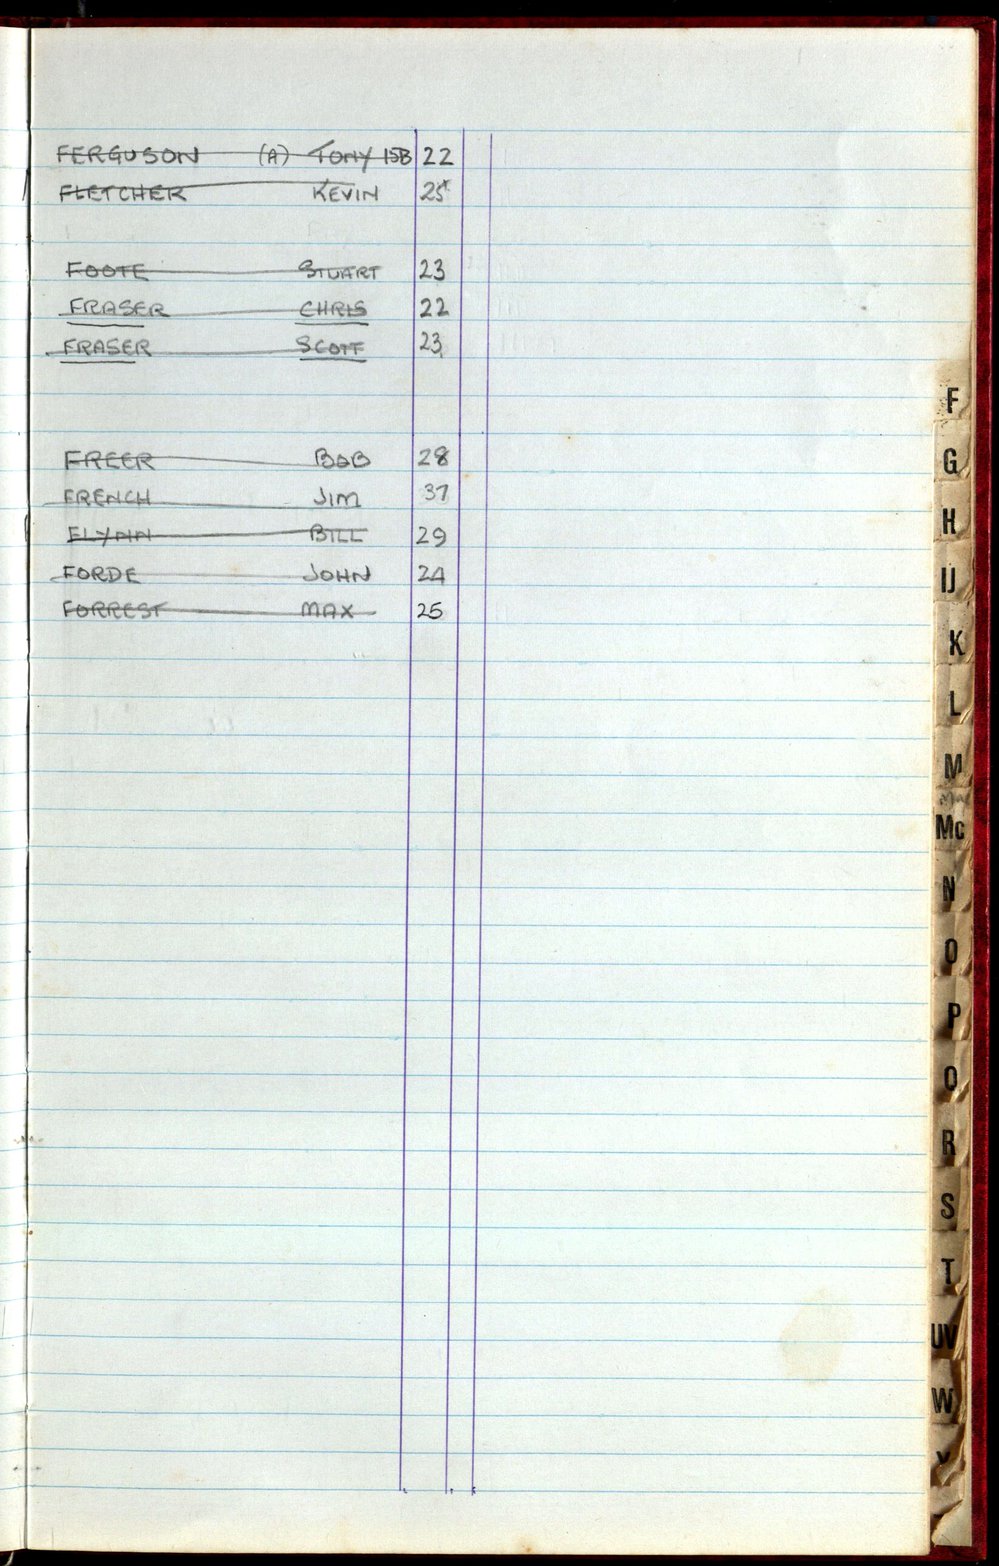 FERGUSON (A) TONY 15B 22
FLETCHER KEVIN 25
FOOTE STUART 23
FRASER CHRIS 22
FRASER SCOTT 23
FREER BOB 28
FRENCH JIM 31
FLYNN BILL 29
FORDE JOHN 24
FORREST MAX 25
F
G
H
IJ
K
L
M
Mac
Mc
N
O
P
Q
R
S
T
UV
W